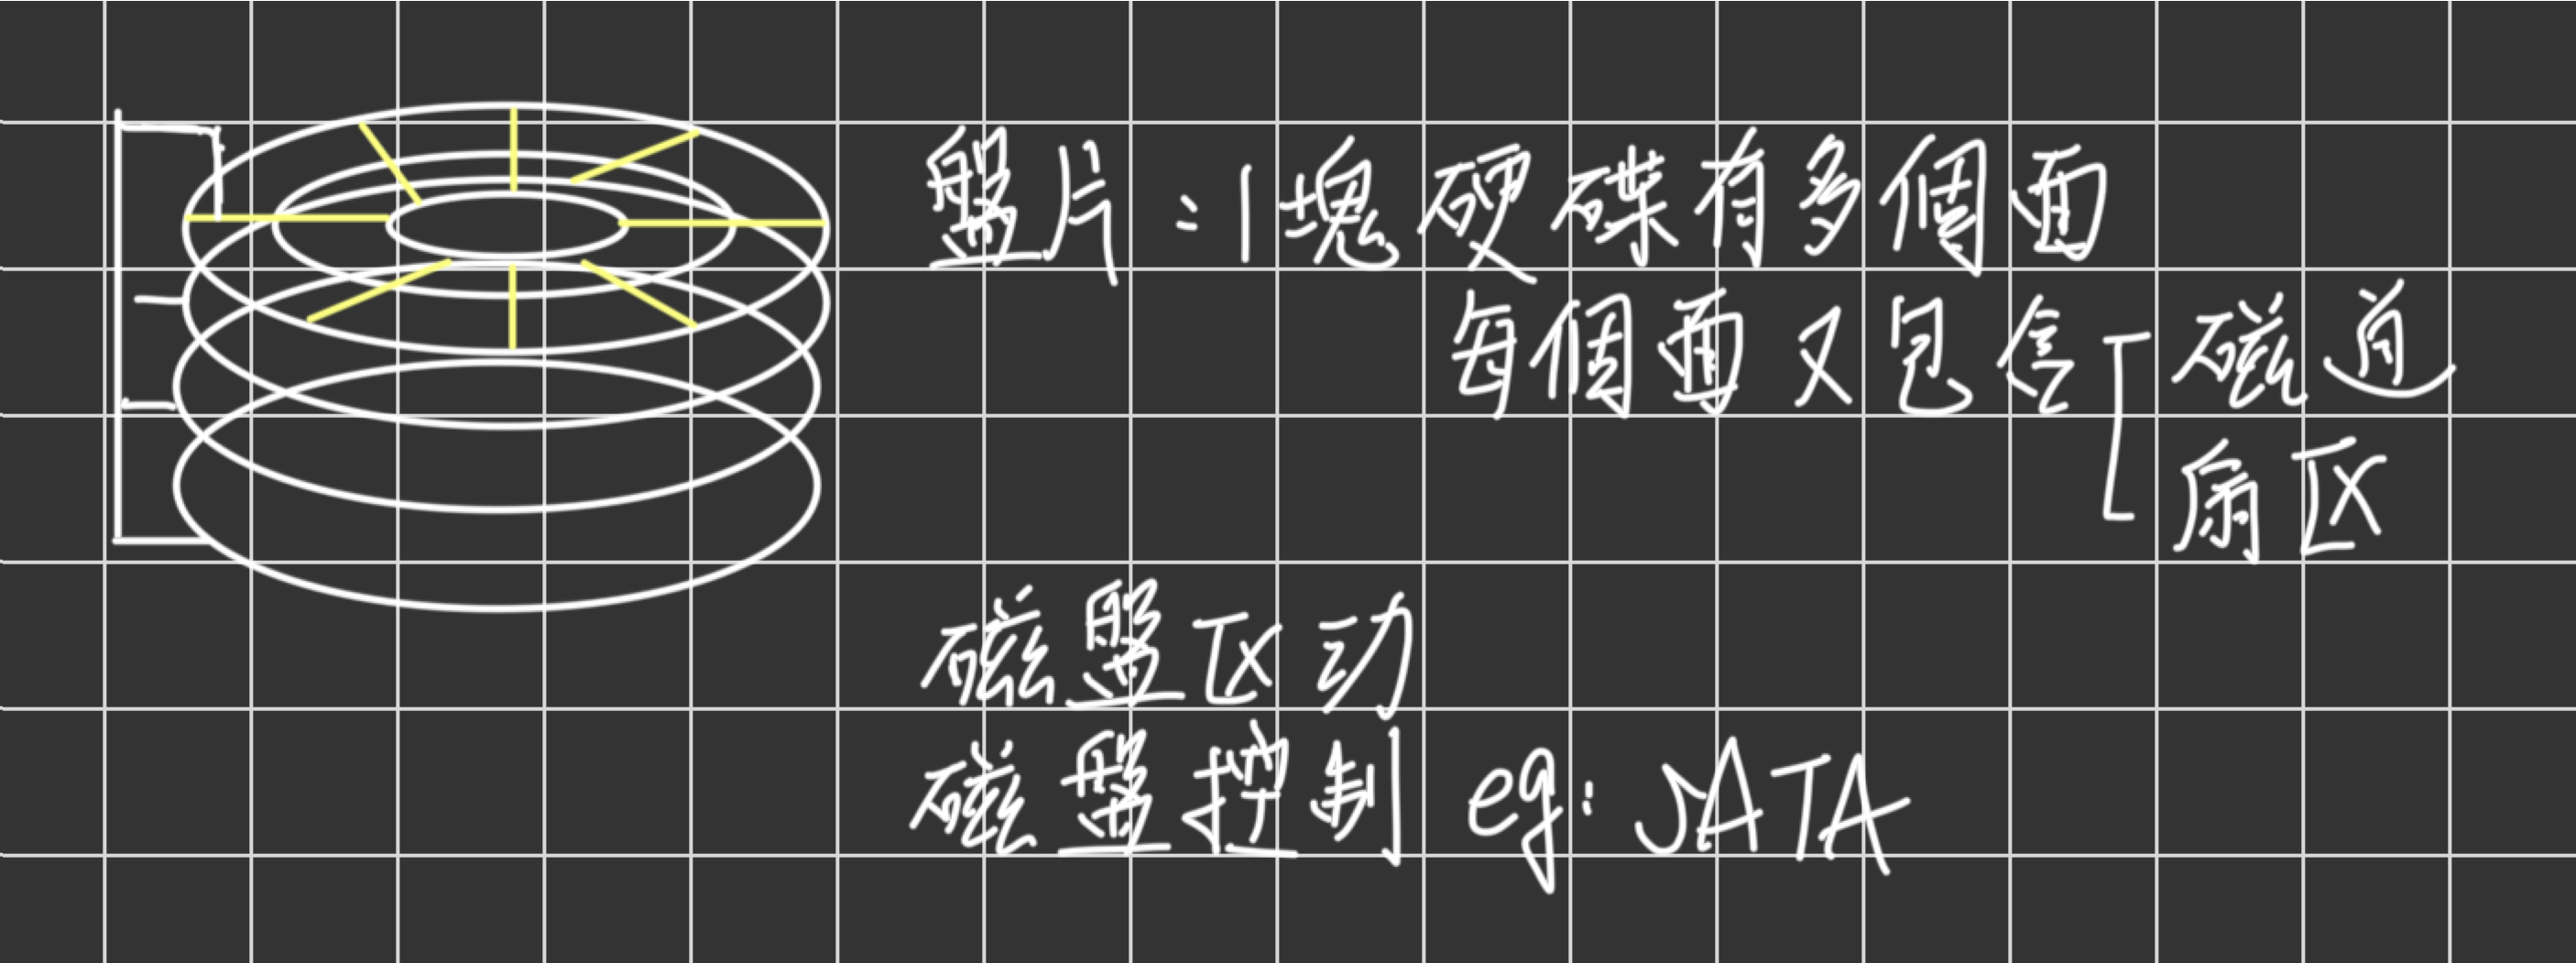 盤片:1塊硬碟有多個面
每個面又包含 磁道
扇区
磁盤区动
磁盤控制 eg: SATA